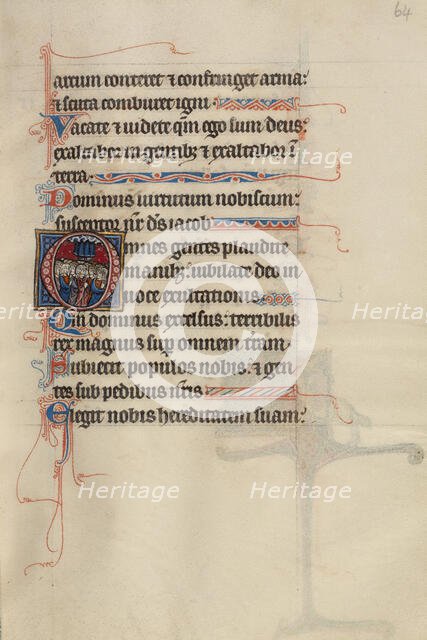 64
arcum conteret ⁊ confringet arma:
⁊ scuta comburet igni.
Vacate ⁊ uidete qm̄ ego sum deus:
exaltabor in gentibꝫ ⁊ exaltabor ī
terra.
Dominus uirtutum nobiscum:
susceptor nr̄ ds̄ iacob.
Omnes gentes plaudite
manibꝫ: iubilate deo in
uoce exultationis.
Qm̄ dominus excelsus: terribilis
rex magnus sup omnem tr̄am.
Subiecit populos nobis: ⁊ gen
tes sub pedibus nr̄is.
Elegit nobis hereditatem suam:
Heritage Heritage
Heritage Heritage Heritage
Heritage Heritage